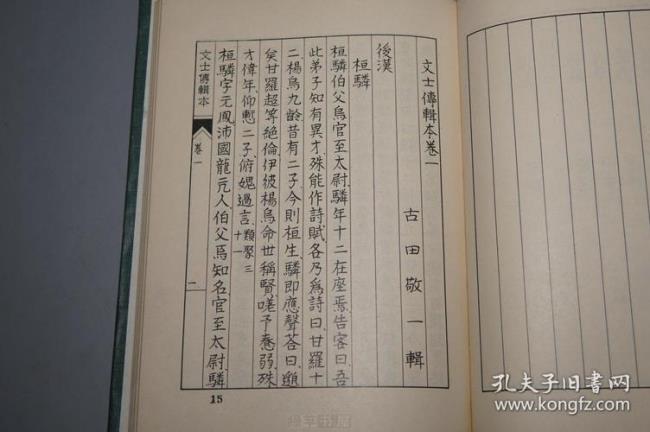 文士傳輯本卷一
古田敬一輯
後漢
桓驎
桓驎伯父烏官至太尉驎年十二在座焉告客曰吾
此弟子知有異才殊能作詩賦各乃爲詩曰甘羅十
二楊烏九齡昔有二子今則桓生驎即應聲荅曰邈
矣甘羅超等絕倫伊彼楊烏命世稱賢嗟予惷弱殊
才偉年仰慙二子俯媿過言類聚三十一
桓驎字元鳳沛國龍亢人伯父焉知名官至太尉驎
文士傳輯本
卷一
一
15
孔夫子旧书网
www.kongfz.com